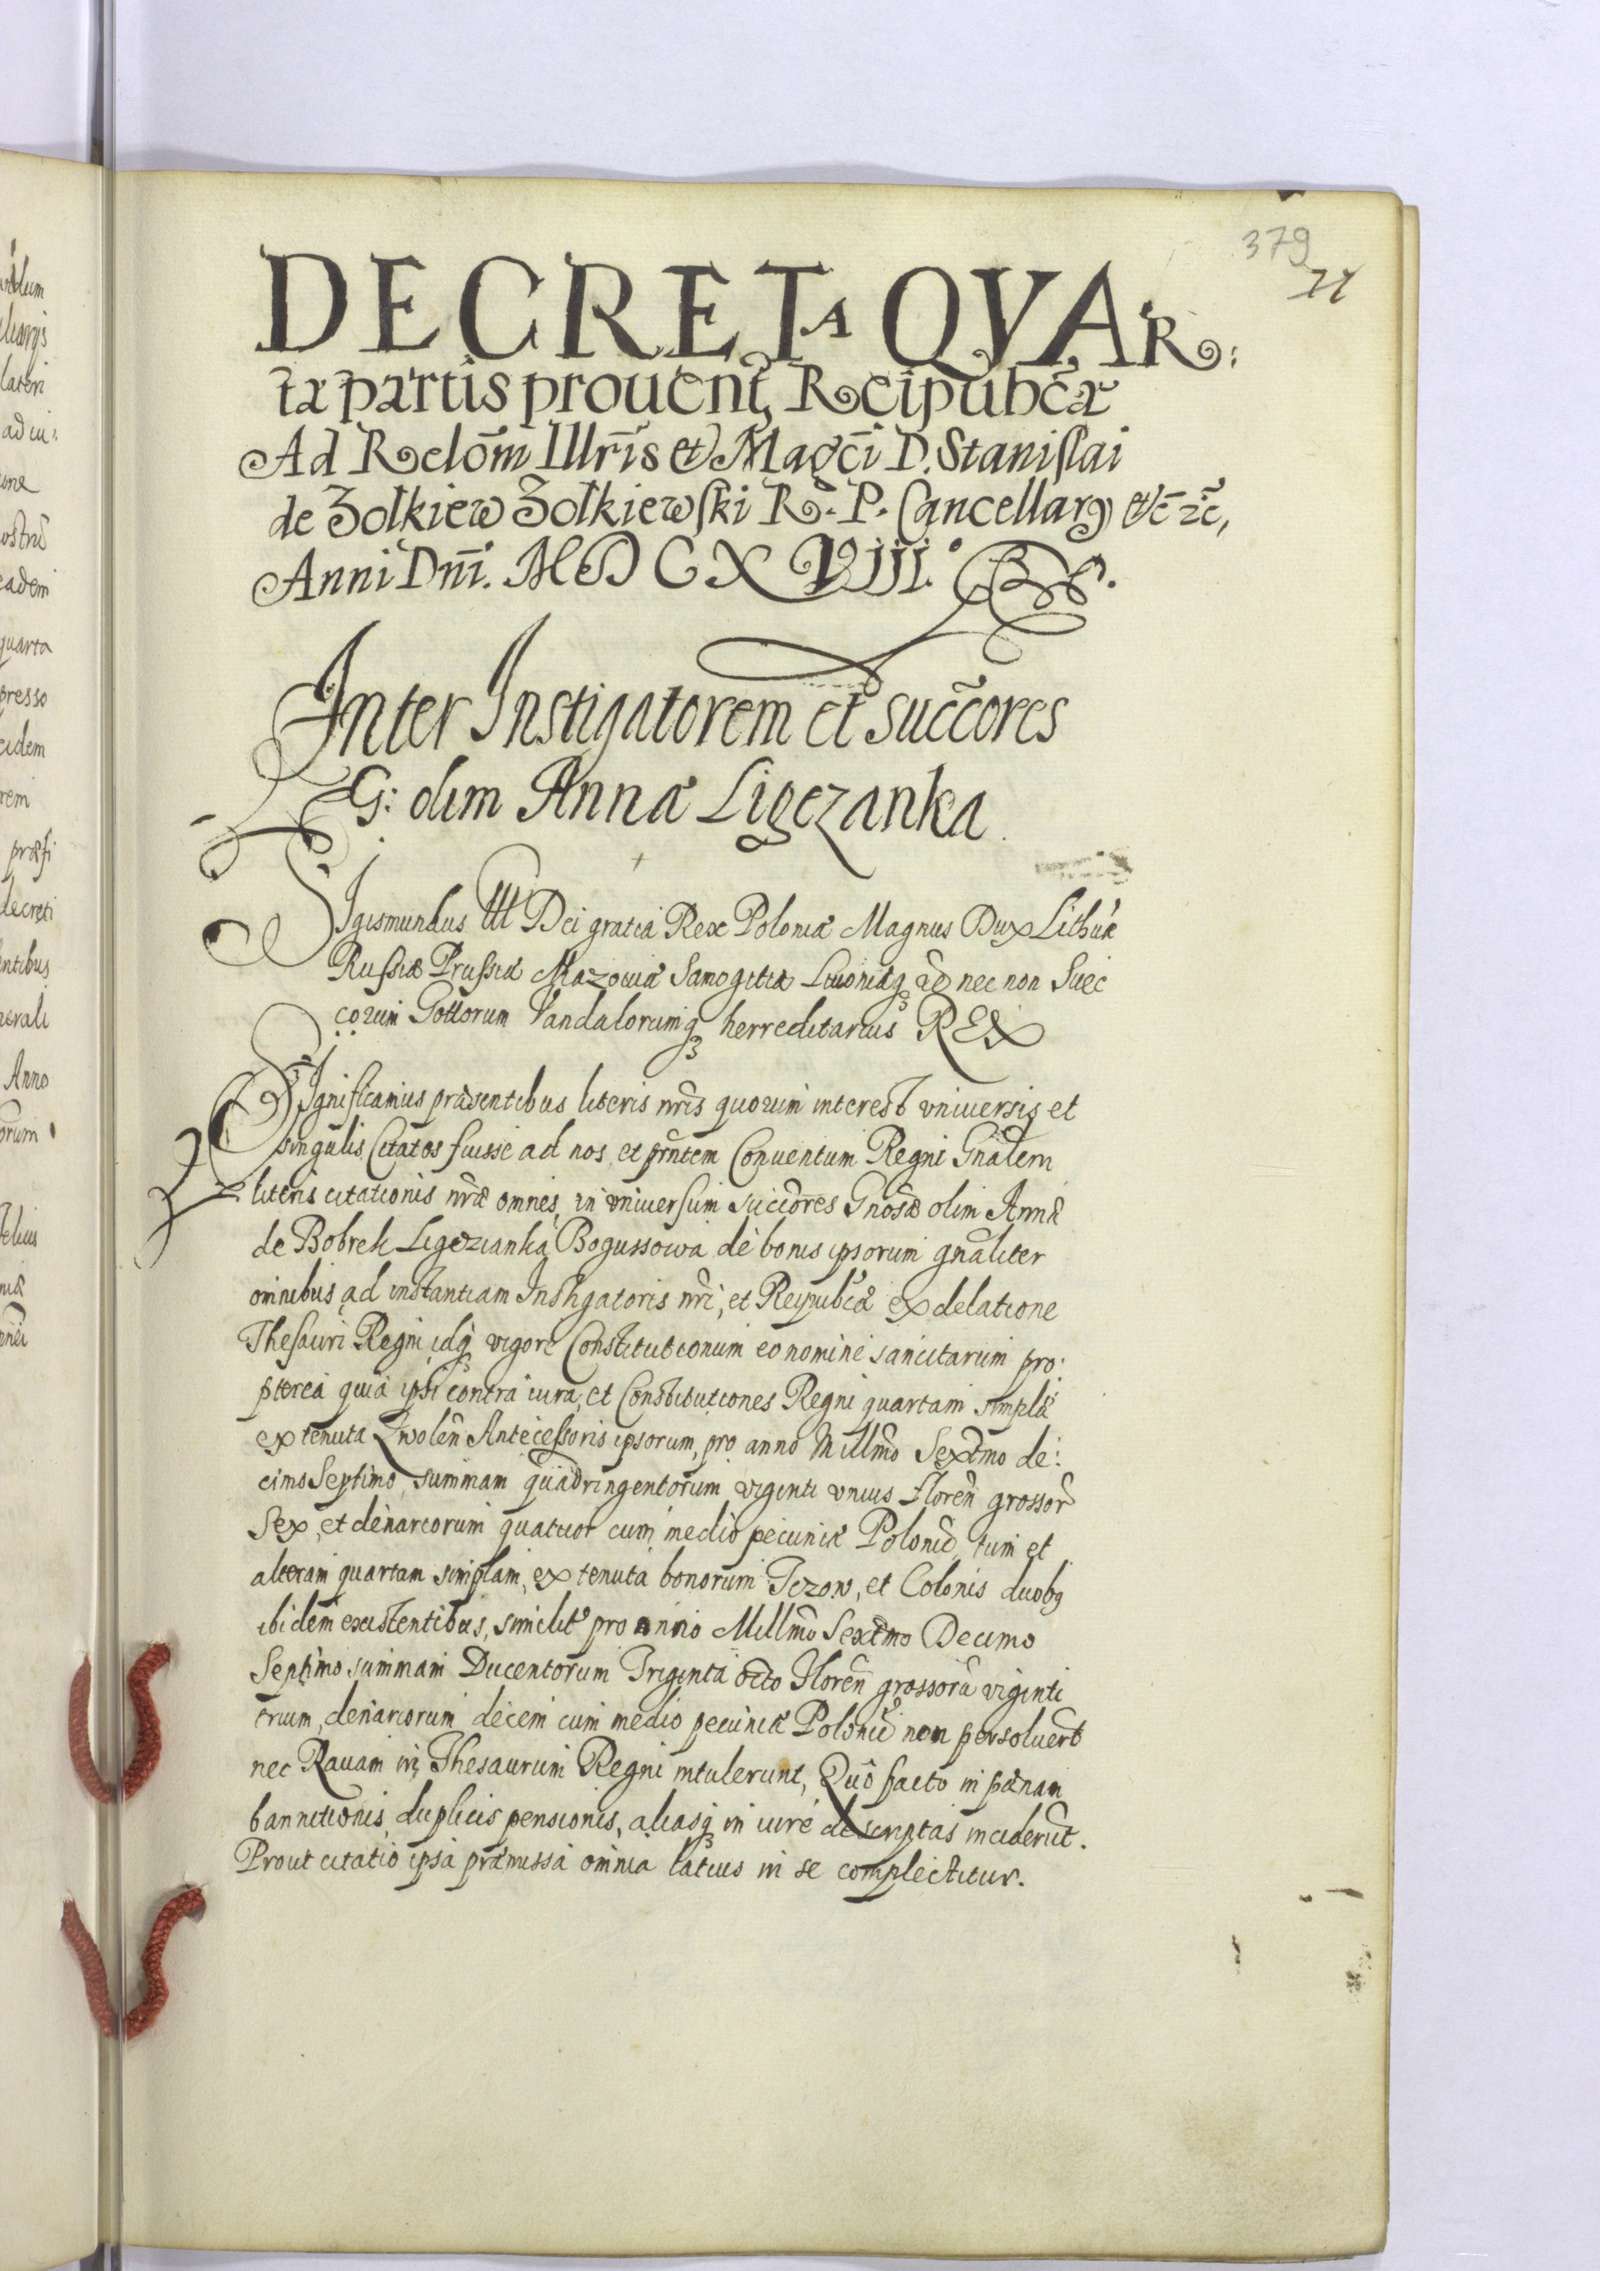 379
71
DECRETA QVAR:
tæ partis prouent, Reipubcæ
Ad Relom Illris et Magci D. Stanislai
de Zolkiew Zolkiewski R. P. Cancellarij etc etc,
Anni Dni. MDCXVIII.
Inter Instigatorem et succores
G: olim Annæ Ligezanka
Sigismundus III Dei gratia Rex Poloniæ Magnus Dux Lithuæ
Russiæ Prussiæ Mazowiæ Samogitiæ Liuoniæq etc nec non Suec
corum Gottorum Vandalorumq herreditarius REX
Significamus præsentibus literis nris quorum interest vniuersis et
singulis, Citatos fuisse ad nos et prntem Conuentum Regni Gnalem
literis citationis nræ omnes, in vniuersum succores Gnosæ olim Annæ
de Bobrek Ligezianka Bogussowa de bonis ipsorum gnaliter
omnibus ad instantiam Instigatoris nri, et Reipubcæ ex delatione
Thesauri Regni idq vigore Constitutionum eo nomine sancitarum pro:
pterea quia ipsi contra iura, et Constitutiones Regni quartam simplæ
ex tenuta Zwolen Antecessoris ipsorum, pro anno Millmo Sextmo de:
cimo Septimo, summam quadringentorum viginti vnius Floren grossor
Sex, et denariorum quatuor cum medio pecuniæ Polonic, tum et
alteram quartam simplam, ex tenuta bonorum Jezow, et Colonis duobq
ibidem existentibus, similit pro anno Millmo Sextmo Decimo
Septimo summam Ducentorum Triginta octo Floren grossoru viginti
trium, denariorum decem cum medio pecuniæ Polonic non persoluert
nec Rauam in Thesaurum Regni intulerunt, Quo facto in pænam
bannitionis, duplicis pensionis, aliasq in iure descriptas inciderut.
Prout citatio ipsa præmissa omnia latius in se complectitur.